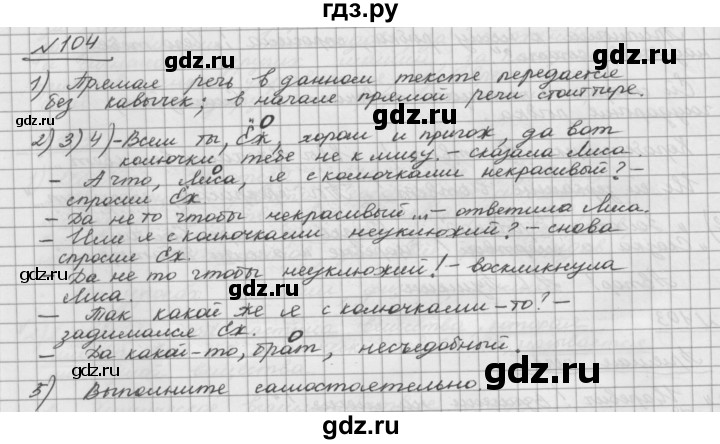 гдз.ру
№104
1) Прямая речь в данном тексте передается
без кавычек; в начале прямой речи стоит тире.
2) 3) 4) - Всем ты, Ёж, хорош и пригож, да вот
О
колючки тебе не к лицу. - сказала Лиса.
О
- А что, Лиса, я с колючками некрасивый? -
спросил Ёж
- Да не то чтобы некрасивый... - ответила Лиса.
- Или я с колючками неуклюжий? - снова
спросил Ёж.
- Да не то чтобы неуклюжий! - воскликнула
Лиса.
- Так какой же я с колючками-то? -
задумался Ёж.
О
- Да какой-то, брат, несъедобный.
5) Выполните самостоятельно.
gdz.top
gdz.top
gdz.top
gdz.top
gdz.top
gdz.top